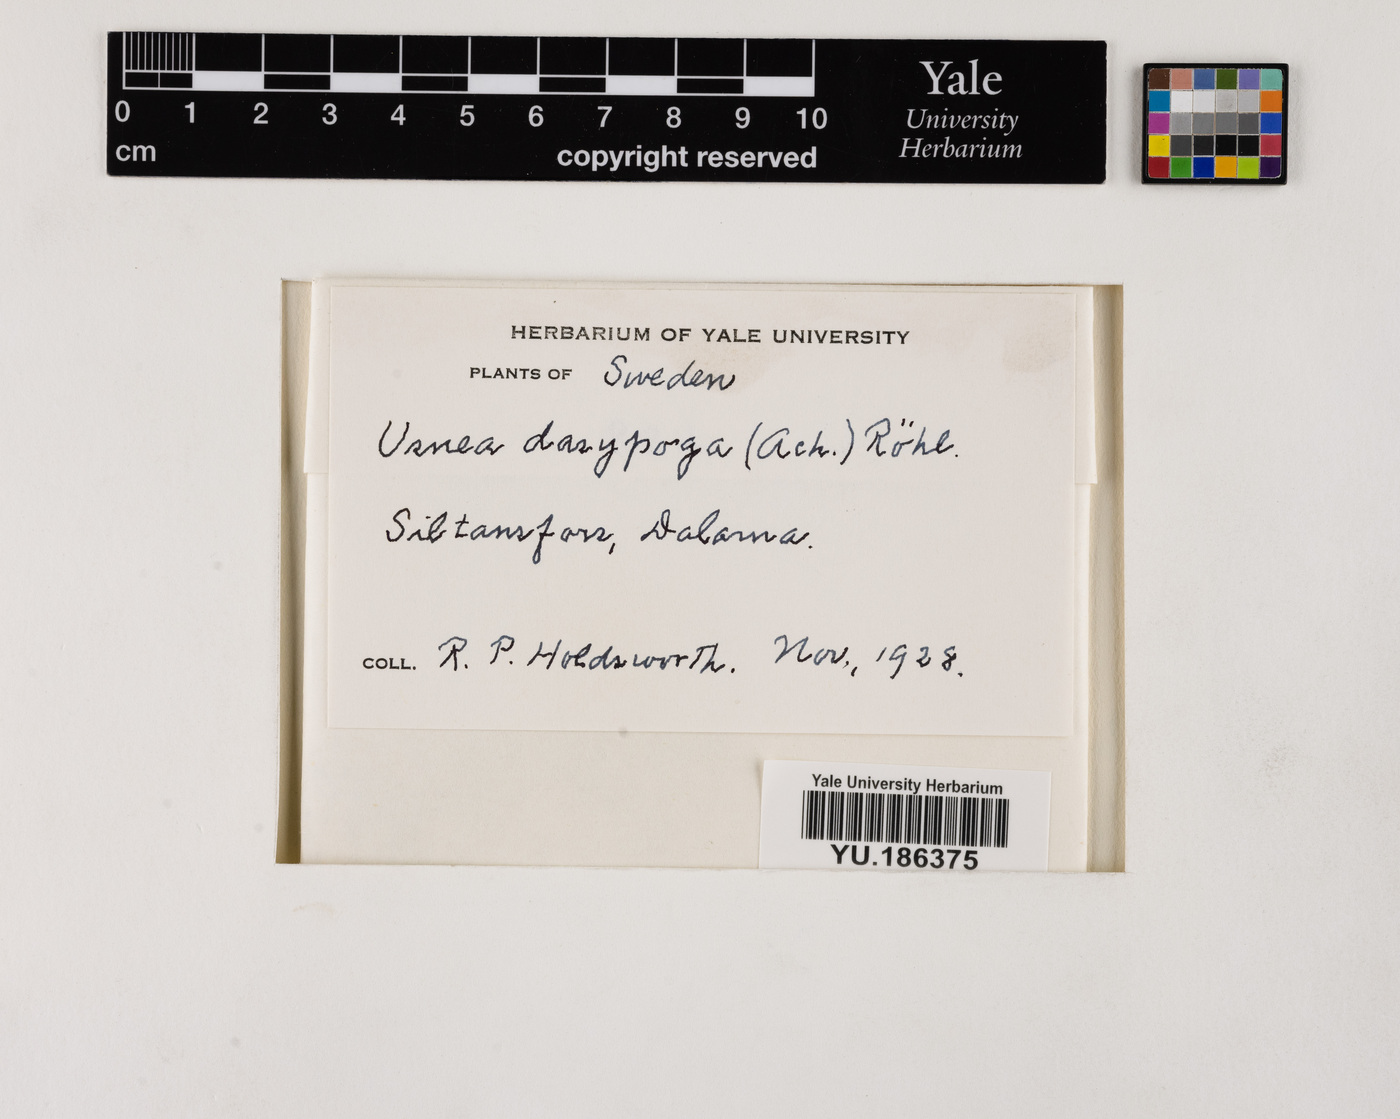 0 1 2 3 4 5 6 7 8 9 10
cm
copyright reserved
Yale
University
Herbarium
HERBARIUM OF YALE UNIVERSITY
PLANTS OF Sweden
Usnea dasypoga (Ach.) Röhl.
Siltansfors, Dalarna.
COLL. R. P. Holdsworth. Nov., 1928.
Yale University Herbarium
YU.186375